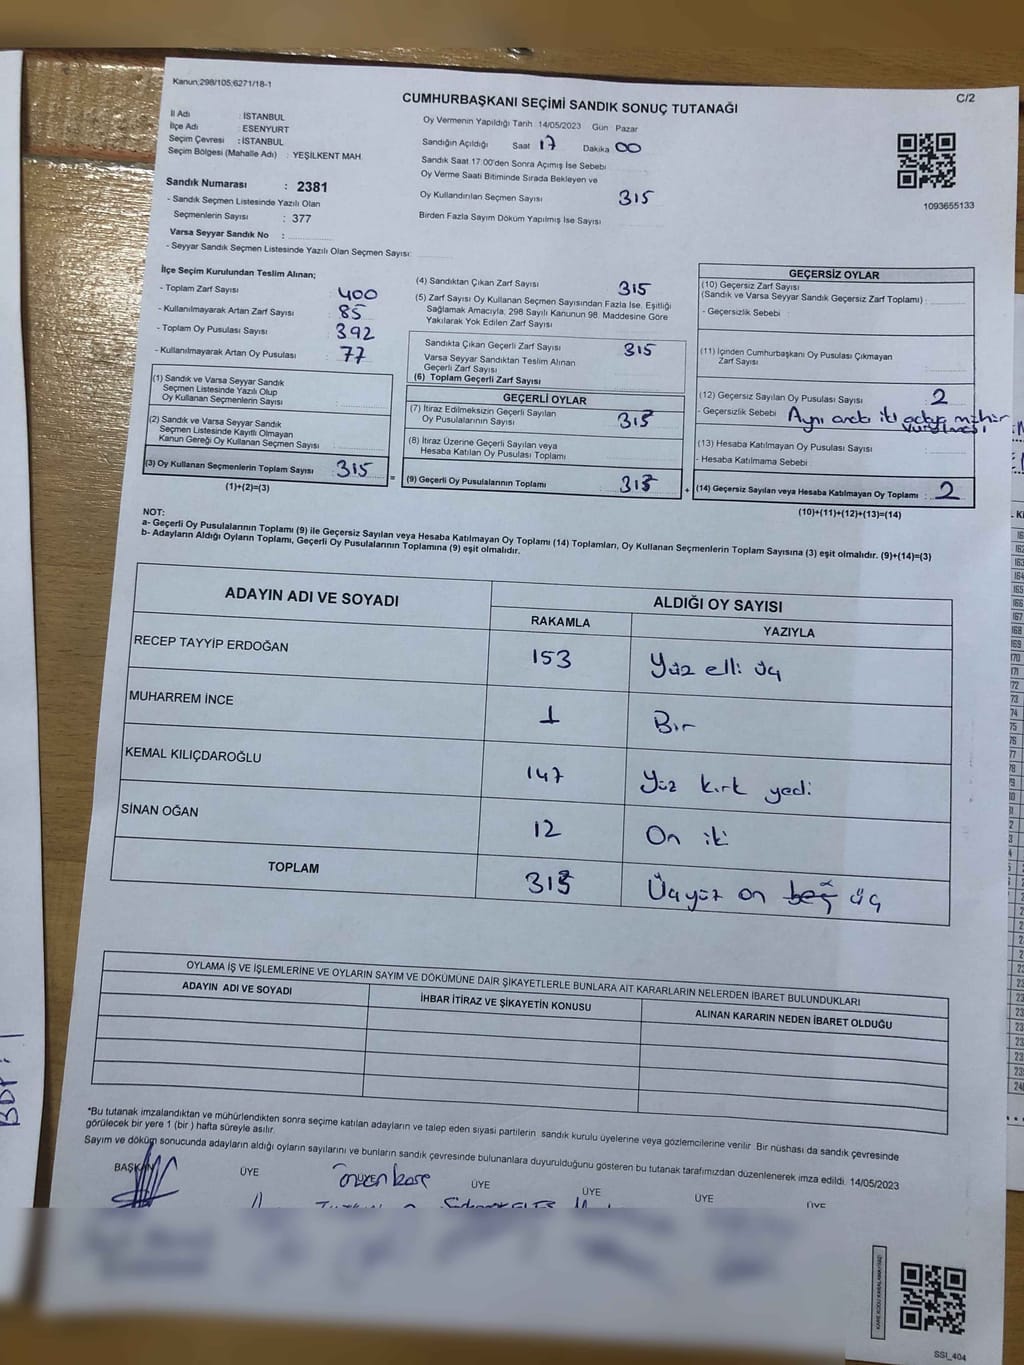 Kanun:298/105;6271/18-1
C/2
CUMHURBAŞKANI SEÇİMİ SANDIK SONUÇ TUTANAĞI
İl Adı : İSTANBUL
İlçe Adı : ESENYURT
Seçim Çevresi : İSTANBUL
Seçim Bölgesi (Mahalle Adı) : YEŞİLKENT MAH.
Sandık Numarası : 2381
- Sandık Seçmen Listesinde Yazılı Olan
Seçmenlerin Sayısı : 377
Varsa Seyyar Sandık No :
- Seyyar Sandık Seçmen Listesinde Yazılı Olan Seçmen Sayısı:
Oy Vermenin Yapıldığı Tarih :14/05/2023 Gün Pazar
Sandığın Açıldığı Saat 17 Dakika 00
Sandık Saat 17:00'den Sonra Açımış İse Sebebi
Oy Verme Saati Bitiminde Sırada Bekleyen ve
Oy Kullandırılan Seçmen Sayısı 315
Birden Fazla Sayım Döküm Yapılmış İse Sayısı
1093655133
İlçe Seçim Kurulundan Teslim Alınan;
- Toplam Zarf Sayısı 400
- Kullanılmayarak Artan Zarf Sayısı : 85
- Toplam Oy Pusulası Sayısı : 392
- Kullanılmayarak Artan Oy Pusulası : 77
(1) Sandık ve Varsa Seyyar Sandık
Seçmen Listesinde Yazılı Olup
Oy Kullanan Seçmenlerin Sayısı :
(2) Sandık ve Varsa Seyyar Sandık
Seçmen Listesinde Kayıtlı Olmayan
Kanun Gereği Oy Kullanan Seçmen Sayısı :
(3) Oy Kullanan Seçmenlerin Toplam Sayısı : 315
(1)+(2)=(3)
(4) Sandıktan Çıkan Zarf Sayısı 315
(5) Zarf Sayısı Oy Kullanan Seçmen Sayısından Fazla İse, Eşitliği
Sağlamak Amacıyla, 298 Sayılı Kanunun 98. Maddesine Göre
Yakılarak Yok Edilen Zarf Sayısı
Sandıkta Çıkan Geçerli Zarf Sayısı 315
Varsa Seyyar Sandıktan Teslim Alınan
Geçerli Zarf Sayısı
(6) Toplam Geçerli Zarf Sayısı
GEÇERLİ OYLAR
(7) İtiraz Edilmeksizin Geçerli Sayılan
Oy Pusulalarının Sayısı : 313
(8) İtiraz Üzerine Geçerli Sayılan veya
Hesaba Katılan Oy Pusulası Toplamı
=
(9) Geçerli Oy Pusulalarının Toplamı 313
GEÇERSİZ OYLAR
(10) Geçersiz Zarf Sayısı
(Sandık ve Varsa Seyyar Sandık Geçersiz Zarf Toplamı) :
- Geçersizlik Sebebi :
(11) İçinden Cumhurbaşkanı Oy Pusulası Çıkmayan
Zarf Sayısı :
(12) Geçersiz Sayılan Oy Pusulası Sayısı : 2
- Geçersizlik Sebebi Aynı anda iki adaya mühür
vurulması
(13) Hesaba Katılmayan Oy Pusulası Sayısı :
- Hesaba Katılmama Sebebi
+ (14) Geçersiz Sayılan veya Hesaba Katılmayan Oy Toplamı : 2
(10)+(11)+(12)+(13)=(14)
NOT:
a- Geçerli Oy Pusulalarının Toplamı (9) ile Geçersiz Sayılan veya Hesaba Katılmayan Oy Toplamı (14) Toplamları, Oy Kullanan Seçmenlerin Toplam Sayısına (3) eşit olmalıdır. (9)+(14)=(3)
b- Adayların Aldığı Oyların Toplamı, Geçerli Oy Pusulalarının Toplamına (9) eşit olmalıdır.
ADAYIN ADI VE SOYADI
ALDIĞI OY SAYISI
RAKAMLA YAZIYLA
RECEP TAYYİP ERDOĞAN 153 Yüz elli üç
MUHARREM İNCE 1 Bir
KEMAL KILIÇDAROĞLU 147 Yüz kırk yedi
SİNAN OĞAN 12 On iki
TOPLAM 313 Üçyüz on beş üç
OYLAMA İŞ VE İŞLEMLERİNE VE OYLARIN SAYIM VE DÖKÜMÜNE DAİR ŞİKAYETLERLE BUNLARA AİT KARARLARIN NELERDEN İBARET BULUNDUKLARI
ADAYIN ADI VE SOYADI İHBAR İTİRAZ VE ŞİKAYETİN KONUSU ALINAN KARARIN NEDEN İBARET OLDUĞU
*Bu tutanak imzalandıktan ve mühürlendikten sonra seçime katılan adayların ve talep eden siyasi partilerin sandık kurulu üyelerine veya gözlemcilerine verilir. Bir nüshası da sandık çevresinde
görülecek bir yere 1 (bir ) hafta süreyle asılır.
Sayım ve döküm sonucunda adayların aldığı oyların sayılarını ve bunların sandık çevresinde bulunanlara duyurulduğunu gösteren bu tutanak tarafımızdan düzenlenerek imza edildi. 14/05/2023
BAŞKAN ÜYE ÜYE ÜYE ÜYE ÜYE
SSI_404